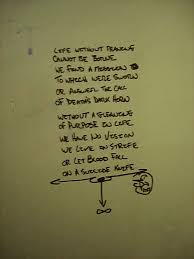 LIFE WITHOUT MEANING
CANNOT BE BORNE
WE FIND A MISSION
TO WHICH WE'RE SWORN
OR ANSWER THE CALL
OF DEATH'S DARK HORN
WITHOUT A GLEANING
OF PURPOSE IN LIFE
WE HAVE NO VISION
WE LIVE IN STRIFE
OR LET BLOOD FALL
ON A SUICIDE KNIFE